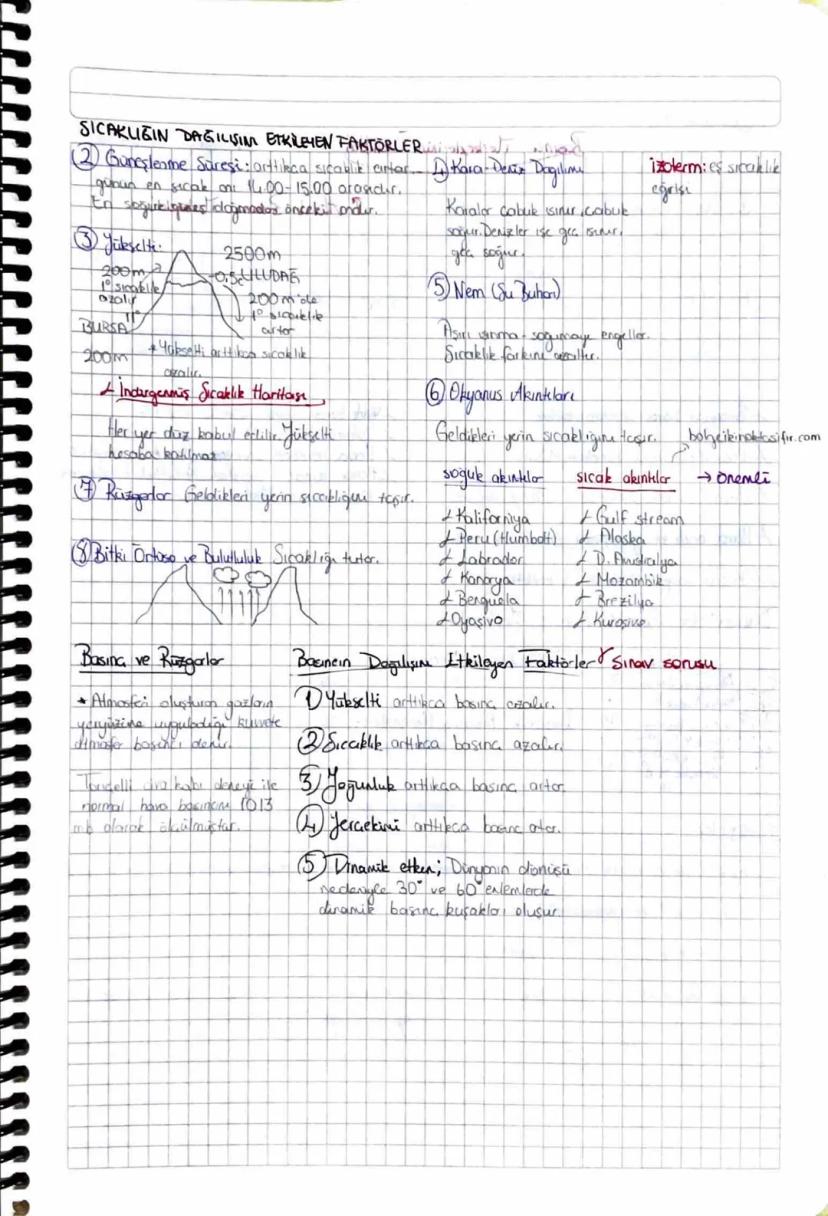 SICAKLIĞIN DAĞILIŞINI ETKİLEYEN FAKTÖRLER
② Güneşlenme Süresi: arttıkca sıcaklık artar.
günün en sıcak anı 14.00-15.00 arasıdır.
En soğuk güneş doğmadan önceki andır.
③ Yükselti:
2500m
200m
-0,5c ULUDAĞ
1° sıcaklık
azalır
200m'de
1° sıcaklık
artar
11°
BURSA
200m
* Yükselti arttıkca sıcaklık
azalır.
İndirgenmiş Sıcaklık Haritası
Her yer düz kabul edilir. Yükselti
hesaba katılmaz
⑦ Rüzgarlar Geldikleri yerin sıcaklığını taşır.
⑧ Bitki Örtüsü ve Bulutluluk Sıcaklığı tutar.
④ Kara-Deniz Dağılımı
Karalar çabuk ısınır, çabuk
soğur. Denizler ise geç ısınır,
geç soğur.
izoterm: eş sıcaklık
eğrisi
⑤ Nem (Su Buharı)
Aşırı ısınma-soğumayı engeller.
Sıcaklık farkını azaltır.
⑥ Okyanus Akıntıları
Geldikleri yerin sıcaklığını taşır.
bolgeikinoktasifir.com
soğuk akıntılar
Kaliforniya
Peru (Humbolt)
Labrador
Kanarya
Benguela
Oyaşivo
sıcak akıntılar → önemli
Gulf stream
Alaska
D. Avustralya
Mozambik
Brezilya
Kuroşivo
Basınç ve Rüzgarlar
* Atmosferi oluşturan gazların
yeryüzüne uyguladığı kuvvete
atmosfer basıncı denir.
Toriçelli civa kabı deneyi ile
normal hava basıncını 1013
mb olarak ölçülmüştür.
Basıncın Dağılışını Etkileyen Faktörler Sınav sorusu
① Yükselti arttıkca basınç azalır.
② Sıcaklık arttıkca basınç azalır.
③ Yoğunluk arttıkca basınç artar
④ Yerçekimi arttıkca basınç artar.
⑤ Dinamik etken; Dünyanın dönüşü
nedeniyle 30° ve 60° enlemlerde
dinamik basınç kuşakları oluşur.